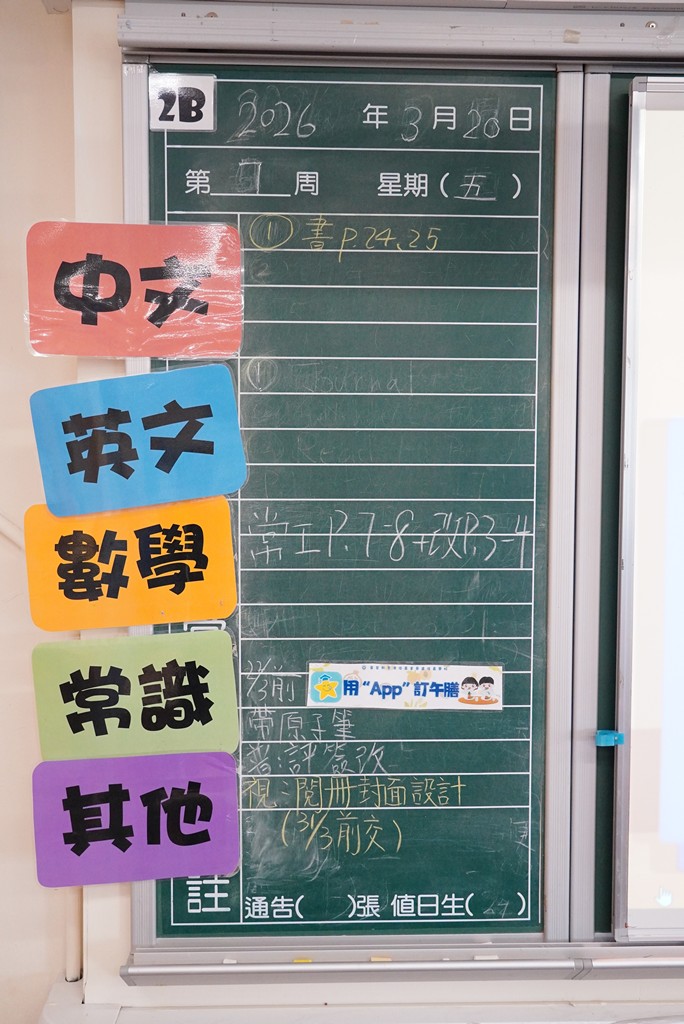 2B
2026 年 3 月 20 日
第 周 星期(五)
中文
① 書 p.24、25
英文
① Journal
數學
常工 P.7-8+改P.3-4
常識
其他
前
用“App”訂午膳
帶原子筆
評簽改
視:閱冊封面設計
(31/3前交)
註
通告( )張 值日生( )